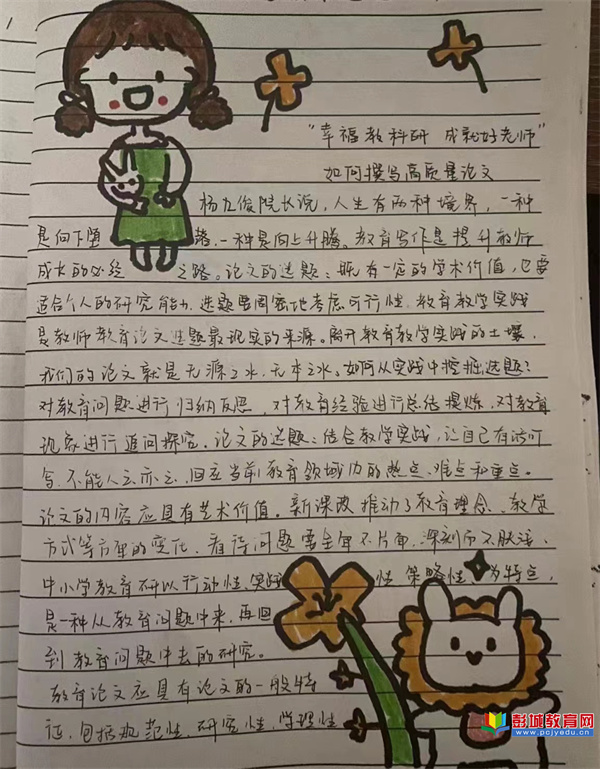 "幸福教科研 成就好老师"
如何撰写高质量论文
杨九俊院长说，人生有两种境界，一种
是向下堕落，一种是向上升腾。教育写作是提升教师
成长的必经之路。论文的选题：既有一定的学术价值，也要
适合个人的研究能力，选题要周密地考虑可行性，教育教学实践
是教师教育论文选题最现实的来源。离开教育教学实践的土壤，
我们的论文就是无源之水，无本之水。如何从实践中挖掘选题？
对教育问题进行归纳反思，对教育经验进行总结提炼，对教育
现象进行追问探究。论文的选题：结合教学实践，让自己有话可
写，不能人云亦云，回应当前教育领域内的热点、难点和重点。
论文的内容应具有艺术价值。新课改推动了教育理念、教学
方式等方面的变化，看待问题要全面不片面，深刻而不肤浅、
中小学教育研以行动性、实践性 策略性 为特点，
是一种从教育问题中来，再回
到教育问题中去的研究。
教育论文应具有论文的一般特
征，包括规范性、研究性、学理性
彭城教育网
www.pcjyedu.cn